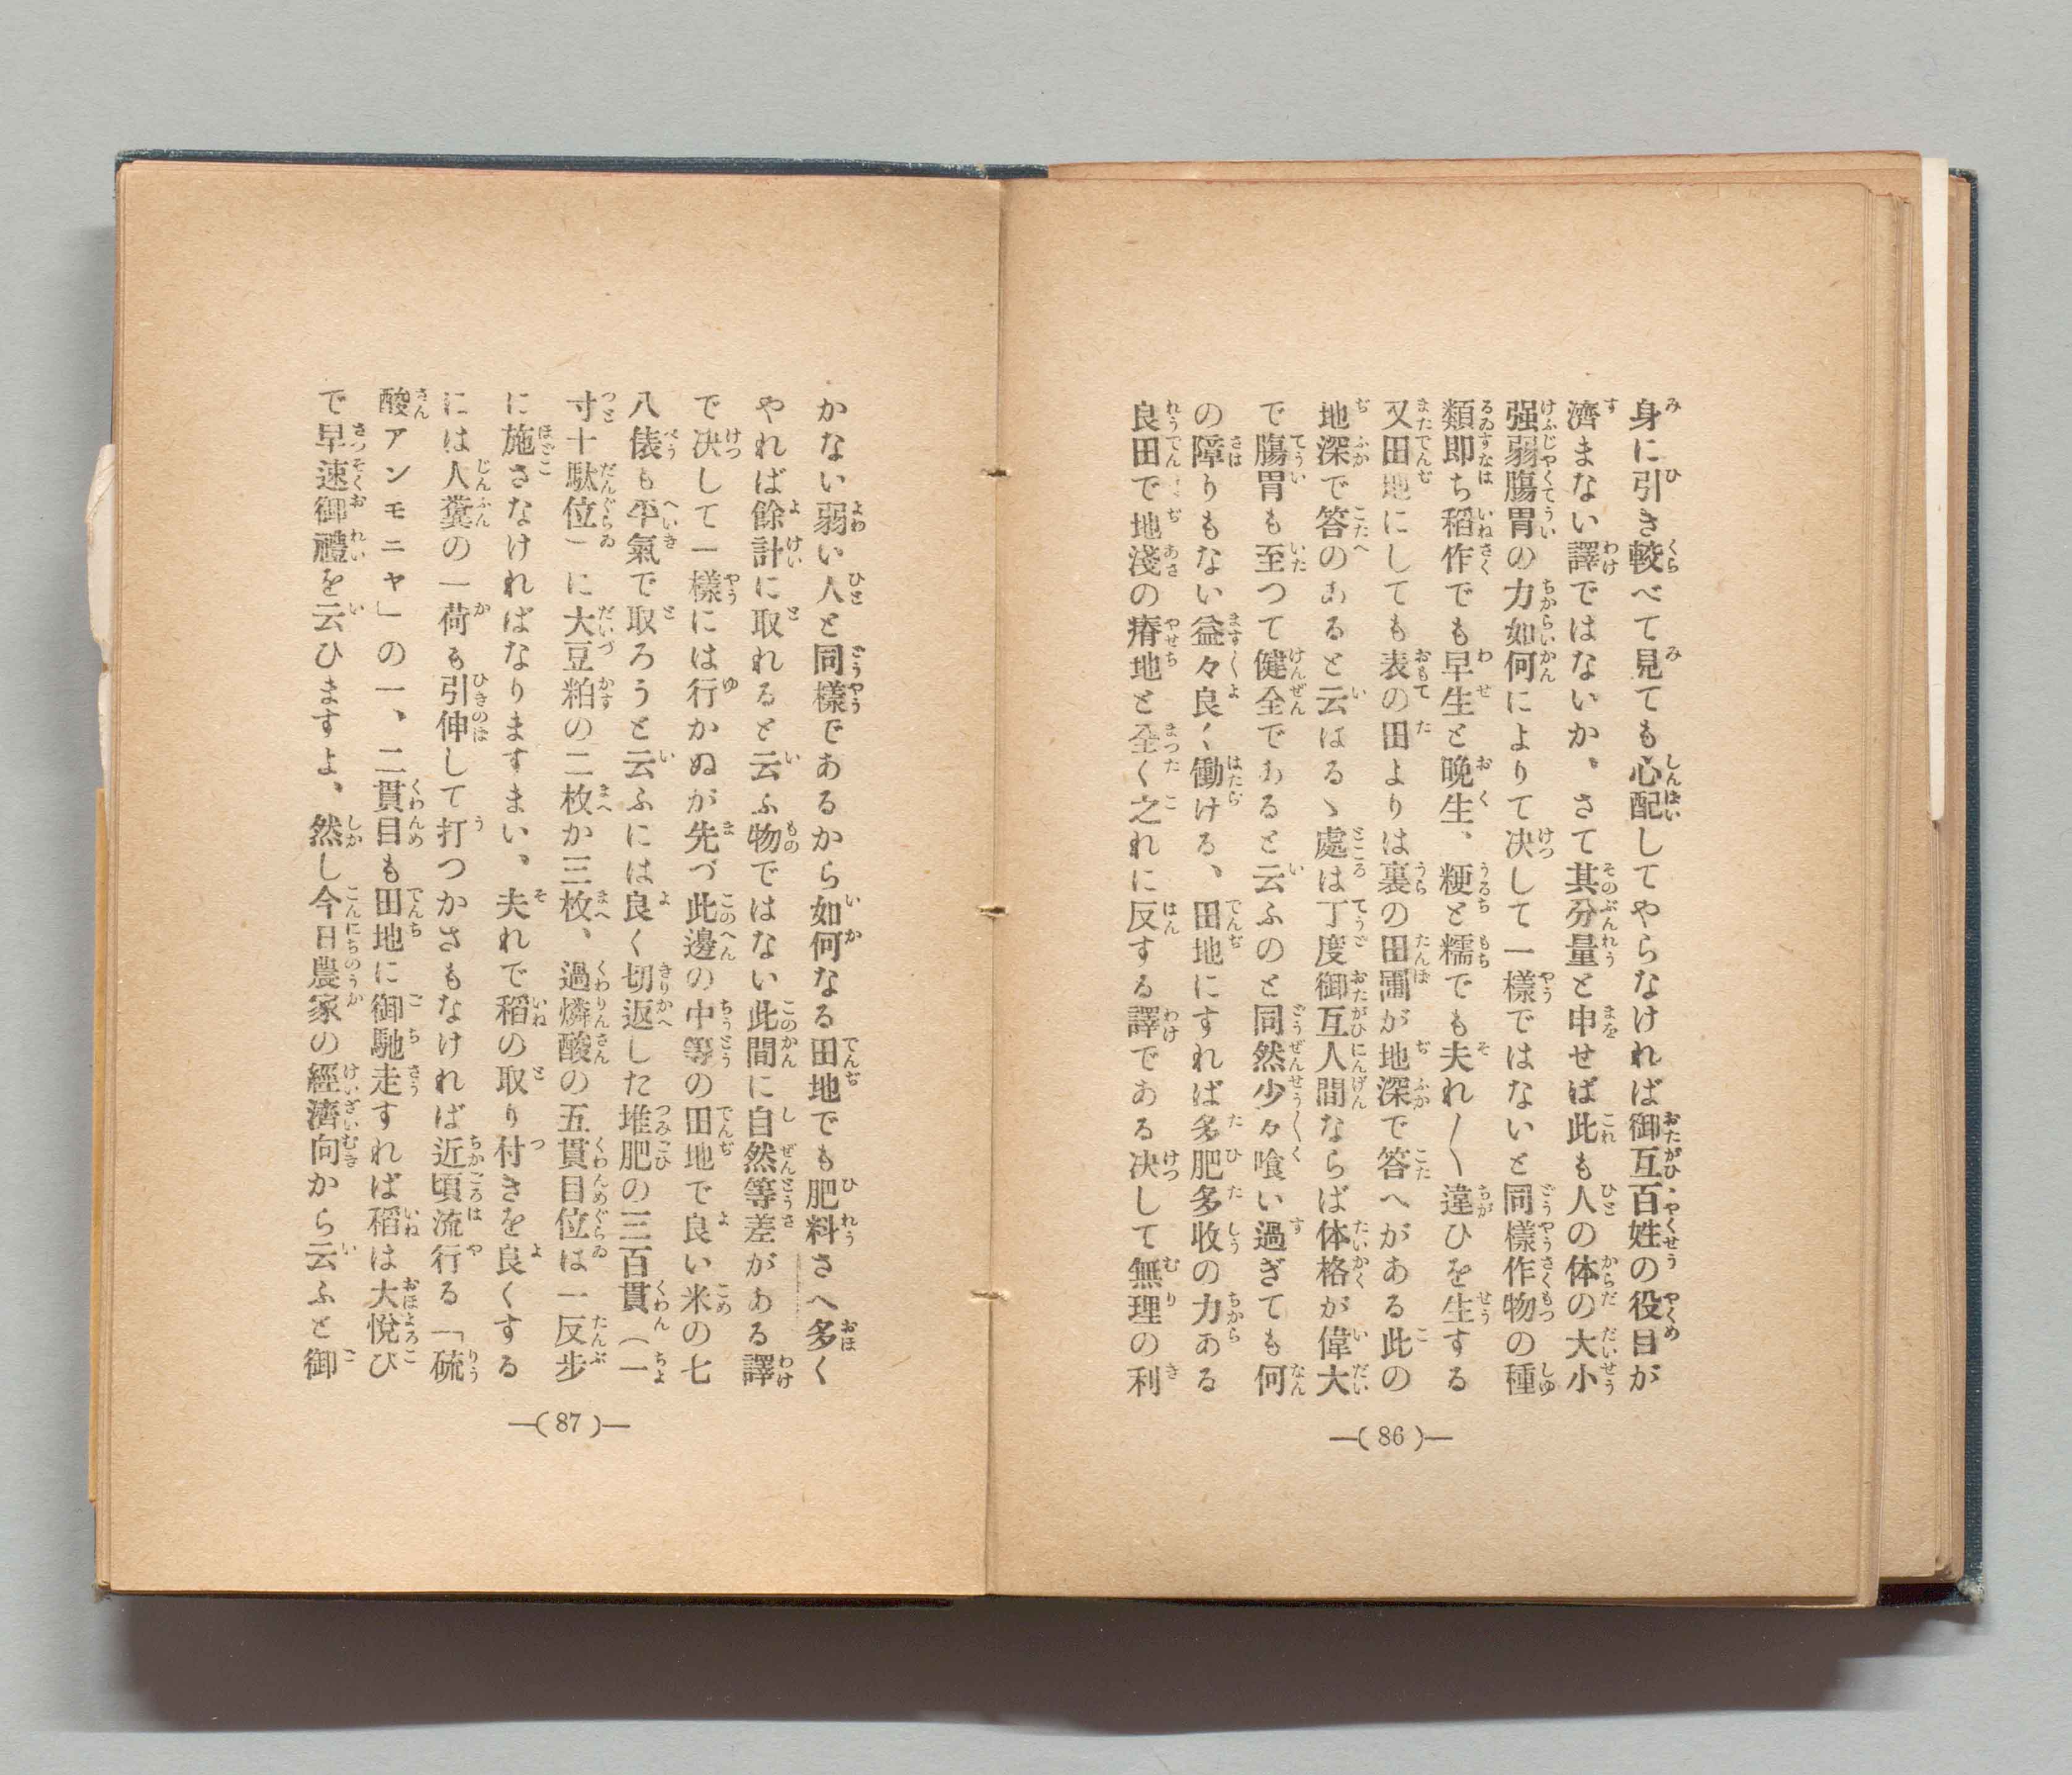 身に引き較べて見ても心配してやらなければ御互百姓の役目が
濟まない譯ではないか、さて其分量と申せば此も人の体の大小
强弱膓胃の力如何によりて决して一樣ではないと同樣作物の種
類即ち稻作でも早生と晩生、粳と糯でも夫れ〱違ひを生する
又田地にしても表の田よりは裏の田圃が地深で答へがある此の
地深で答のあると云はるゝ處は丁度御互人間ならば体格が偉大
で膓胃も至つて健全であると云ふのと同然少々喰い過ぎても何
の障りもない益々良く働ける、田地にすれば多肥多收の力ある
良田で地淺の瘠地と全く之れに反する譯である决して無理の利
—( 86 )—
かない弱い人と同樣であるから如何なる田地でも肥料さへ多く
やれば餘計に取れると云ふ物ではない此間に自然等差がある譯
で决して一樣には行かぬが先づ此邊の中等の田地で良い米の七
八俵も平氣で取ろうと云ふには良く切返した堆肥の三百貫（一
寸十駄位）に大豆粕の二枚か三枚、過燐酸の五貫目位は一反步
に施さなければなりますまい、夫れで稻の取り付きを良くする
には人糞の一荷も引伸して打つかさもなければ近頃流行る「硫
酸アンモニヤ」の一、二貫目も田地に御馳走すれば稻は大悅び
で早速御禮を云ひますよ、然し今日農家の經濟向から云ふと御
—( 87 )—